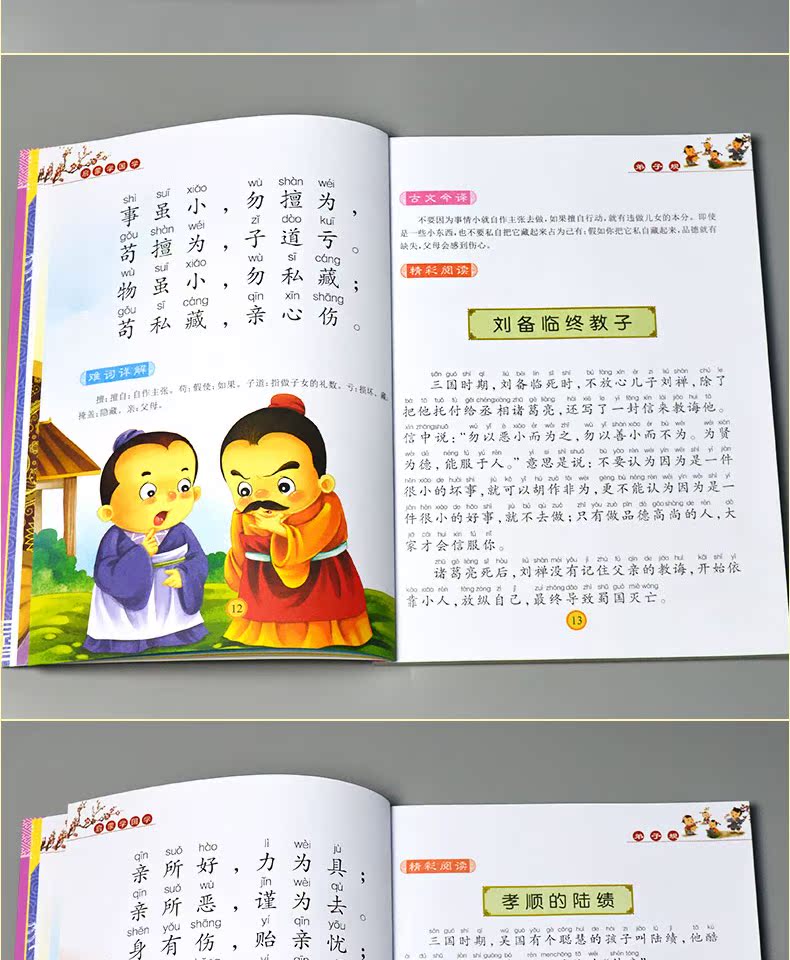 shì suī xiǎo wù shàn wéi
事虽小，勿擅为，
gǒu shàn wéi zǐ dào kuī
苟擅为，子道亏。
wù suī xiǎo wù sī cáng
物虽小，勿私藏；
gǒu sī cáng qīn xīn shāng
苟私藏，亲心伤。
难词详解
擅：擅自；自作主张。苟：假使；如果。子道：指做子女的礼数。亏：损坏。藏：
掩盖；隐藏。亲：父母。
12
弟子规
古文今译
不要因为事情小就自作主张去做，如果擅自行动，就有违做儿女的本分。即使
是一些小东西，也不要私自把它藏起来占为己有；假如你把它私自藏起来，品德就有
缺失，父母会感到伤心。
精彩阅读
刘备临终教子
三国时期，刘备临死时，不放心儿子刘禅，除了
把他托付给丞相诸葛亮，还写了一封信来教诲他。
信中说：“勿以恶小而为之，勿以善小而不为。为贤
为德，能服于人。”意思是说：不要认为因为是一件
很小的坏事，就可以胡作非为，更不能认为因为是一
件很小的好事，就不去做；只有做品德高尚的人，大
家才会信服你。
诸葛亮死后，刘禅没有记住父亲的教诲，开始依
靠小人，放纵自己，最终导致蜀国灭亡。
13
qīn suǒ hào lì wèi jù
亲所好，力为具；
qīn suǒ wù jǐn wèi qù
亲所恶，谨为去。
shēn yǒu shāng yí qīn yōu
身有伤，贻亲忧
弟子规
精彩阅读
孝顺的陆绩
三国时期，吴国有个聪慧的孩子叫陆绩，他酷